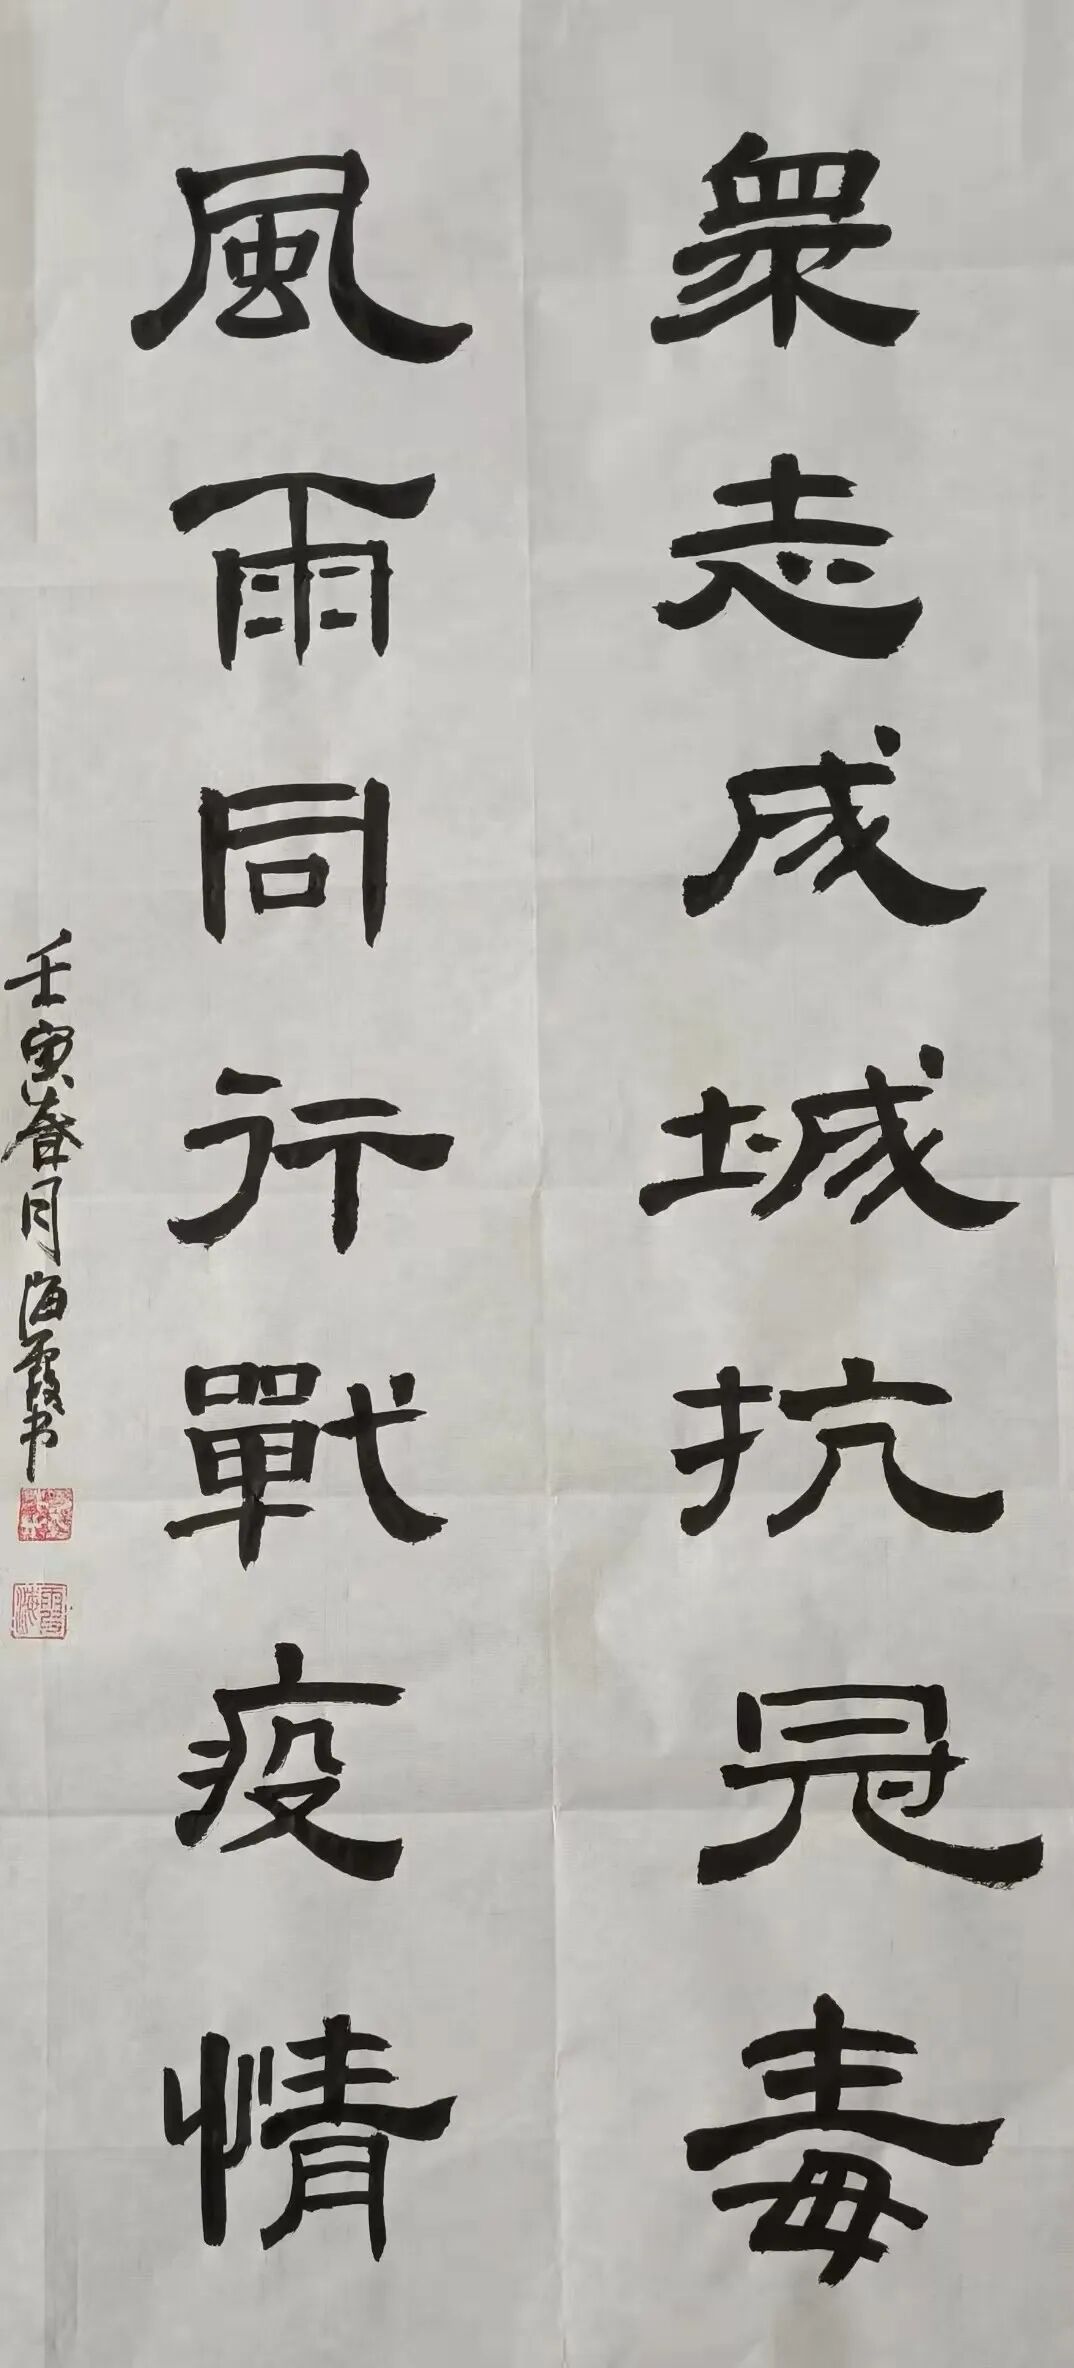 眾志成城抗冠毒
風雨同行戰疫情
壬寅春月海霞书